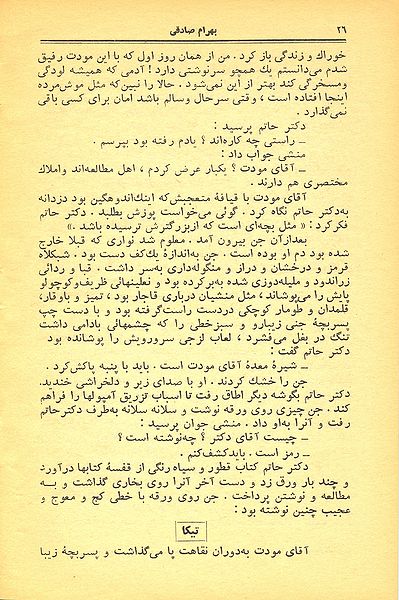 ۲۶ بهرام صادقی
خوراك و زندگی باز كرد . من از همان روز اول كه با این مودت رفیق
شدم می‌دانستم یك همچو سرنوشتی دارد ! آدمی كه همیشه لودگی
ومسخرگی كند بهتر از این نمی‌شود . حالا را نبین‌كه مثل موش‌مرده
اینجا افتاده است ، وقتی سرحال وسالم باشد امان برای كسی باقی
نمی‌گذارد .
دكتر حاتم پرسید :
ــ راستی چه كاره‌اند ؟ یادم رفته بود بپرسم .
منشی جواب داد :
ــ آقای مودت ؟ یكبار عرض كردم ، اهل مطالعه‌اند واملاك
مختصری هم دارند .
آقای مودت با قیافهٔ متعجبش‌كه اینك‌اندوهگین بود دزدانه
به‌دكتر حاتم نگاه كرد . گوئی می‌خواست پوزش بطلبد . دكتر حاتم
فكركرد : « مثل بچه‌ای است كه ازبزرگترش ترسیده باشد .»
بعدازآن جن بیرون آمد . معلوم شد نواری كه قبلا خارج
شده بود دم او بوده است . جن به‌اندازهٔ یك‌كف دست بود . شبكلاه
قرمز و درخشان و دراز و منگوله‌داری به‌سر داشت . قبا و ردائی
زراندود و ملیله‌دوزی شده به‌بركرده بود و نعلینهائی ظریف‌وكوچولو
پایش را می‌پوشاند ، مثل منشیان درباری قاجار بود ، تمیز و باوقار،
قلمدان و طومار كوچكی دردست راست‌گرفته بود و با دست چپ
پسربچهٔ جنی زیبارو و سبزخطی را كه چشمهائی بادامی داشت
تنگ در بغل می‌فشرد ، لعاب لزجی سرورویش را پوشانده بود
دكتر حاتم گفت :
ــ شیرهٔ معدهٔ آقای مودت است . باید با پنبه پاكش‌كرد .
جن را خشك كردند . او با صدای زیر و دلخراشی خندید.
دكتر حاتم بگوشه دیگر اطاق رفت تا اسباب تزریق آمپولها را فراهم
كند . جن چیزی روی ورقه نوشت و سلانه سلانه به‌طرف دكترحاتم
رفت و آنرا به‌او داد . منشی جوان پرسید :
ــ چیست آقای دكتر ؟ چه‌نوشته است ؟
ــ رمز است . بایدكشف‌كنم .
دكتر حاتم كتاب قطور و سیاه رنگی از قفسهٔ كتابها درآورد
و چند بار ورق زد و دست آخر آنرا روی بخاری گذاشت و بــه
مطالعه و نوشتن پرداخت . جن روی ورقه با خطی كج و معوج و
عجیب چنین نوشته بود :
تیكا
آقای مودت به‌دوران نقاهت پا می‌گذاشت و پسربچهٔ زیبا